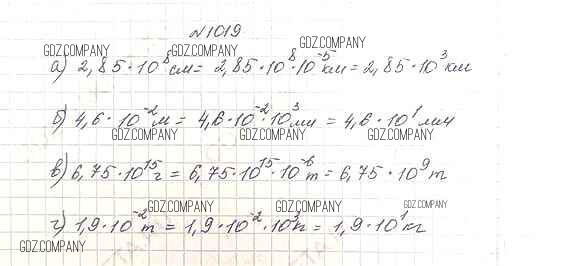 №1019
GDZ.COMPANY
GDZ.COMPANY GDZ.COMPANY
а) 2,85·10⁸ см = 2,85·10⁸·10⁻⁵ км = 2,85·10³ км
б) 4,6·10⁻² м = 4,6·10⁻²·10³ мм = 4,6·10¹ мм
GDZ.COMPANY GDZ.COMPANY GDZ.COMPANY
в) 6,75·10¹⁵ г = 6,75·10¹⁵·10⁻⁶ т = 6,75·10⁹ т
GDZ.COMPANY GDZ.COMPANY GDZ.COMPANY
г) 1,9·10⁻² т = 1,9·10⁻²·10³ к = 1,9·10¹ кг
GDZ.COMPANY